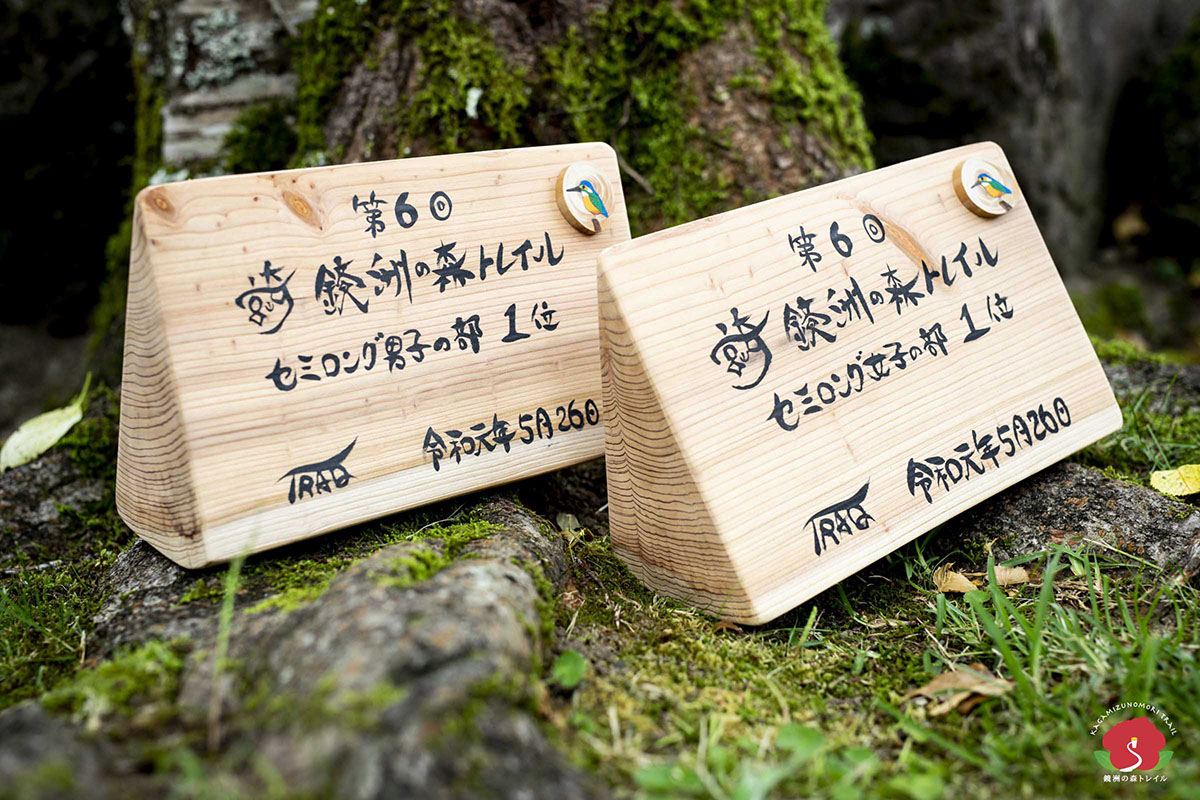 第6回
鏡洲の森トレイル
セミロング男子の部 1位
令和元年5月26日
TRAQ
第6回
鏡洲の森トレイル
セミロング女子の部 1位
令和元年5月26日
TRAQ
KAGAMIZUNOMORI TRAIL
鏡洲の森トレイル